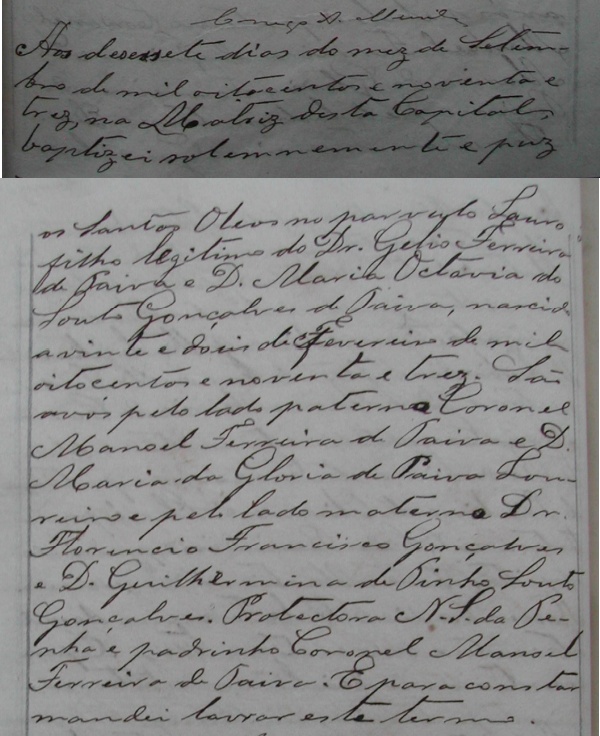 Aos desessete dias do mez de Setem-
bro de mil oitocentos e noventa e
trez, na Matriz desta Capital,
baptizei solemnemente e puz
os Santos Oleos no parvulo Lauro,
filho legitimo do Dr. Gelio Ferreira
de Paiva e D. Maria Octavia do
Souto Gonçalves de Paiva, nascido
a vinte e dois de Fevereiro de mil
oitocentos e noventa e trez. São
avós pelo lado paterno Coronel
Manoel Ferreira de Paiva e D.
Maria da Gloria de Paiva Lou-
reiro e pelo lado materno Dr.
Florencio Francisco Gonçalves
e D. Guilhermina de Pinho Souto
Gonçalves. Protectora N. S. da Pe-
nha e padrinho Coronel Manoel
Ferreira de Paiva. E para constar
mandei lavrar este termo.